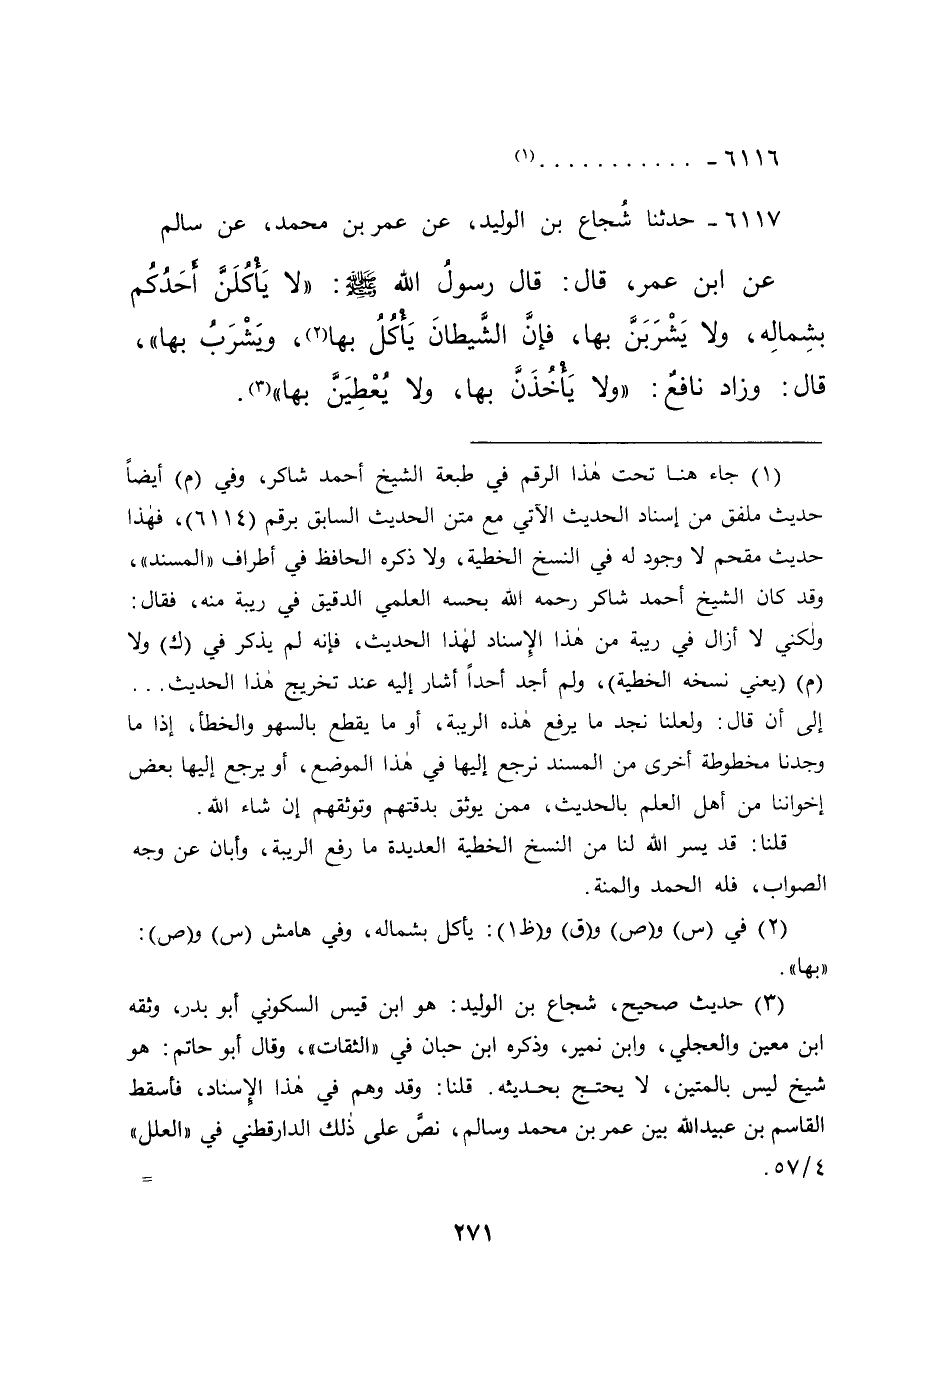 ٦١١٦ـ . . . . . . . . . . . .(١)
٦١١٧ـ حدثنا شُجاع بن الوليد، عن عمر بن محمد، عن سالم
عن ابن عمر، قال: قال رسولُ الله ﷺ: «لا يَأْكُلَنَّ أَحَدُكُم
بشِمالِه، ولا يَشْرَبَنَّ بها، فإنَّ الشَّيطانَ يَأْكُلُ بها(٢)، ويَشْرَبُ بها»،
قال: وزاد نافعٌ: «ولا يَأْخُذَنَّ بها، ولا يُعْطِيَنَّ بها»(٣).
(١) جاء هنا تحت هٰذا الرقم في طبعة الشيخ أحمد شاكر، وفي (م) أيضاً
حديث ملفق من إسناد الحديث الآتي مع متن الحديث السابق برقم (٦١١٤)، فهٰذا
حديث مقحم لا وجود له في النسخ الخطية، ولا ذكره الحافظ في أطراف «المسند»،
وقد كان الشيخ أحمد شاكر رحمه الله بحسه العلمي الدقيق في ريبة منه، فقال:
ولٰكني لا أزال في ريبة من هٰذا الإسناد لهٰذا الحديث، فإنه لم يذكر في (ك) ولا
(م) (يعني نسخه الخطية)، ولم أجد أحداً أشار إليه عند تخريج هٰذا الحديث...
إلى أن قال: ولعلنا نجد ما يرفع هٰذه الريبة، أو ما يقطع بالسهو والخطأ، إذا ما
وجدنا مخطوطة أخرى من المسند نرجع إليها في هٰذا الموضع، أو يرجع إليها بعض
إخواننا من أهل العلم بالحديث، ممن يوثق بدقتهم وتوثقهم إن شاء الله.
قلنا: قد يسر الله لنا من النسخ الخطية العديدة ما رفع الريبة، وأبان عن وجه
الصواب، فله الحمد والمنة.
(٢) في (س) و(ص) و(ق) و(ظ١): يأكل بشماله، وفي هامش (س) و(ص):
«بها».
(٣) حديث صحيح، شجاع بن الوليد: هو ابن قيس السكوني أبو بدر، وثقه
ابن معين والعجلي، وابن نمير، وذكره ابن حبان في «الثقات»، وقال أبو حاتم: هو
شيخ ليس بالمتين، لا يحتج بحديثه. قلنا: وقد وهم في هٰذا الإسناد، فأسقط
القاسم بن عبيدالله بين عمر بن محمد وسالم، نصَّ على ذٰلك الدارقطني في «العلل»
٥٧/٤.
=
٢٧١